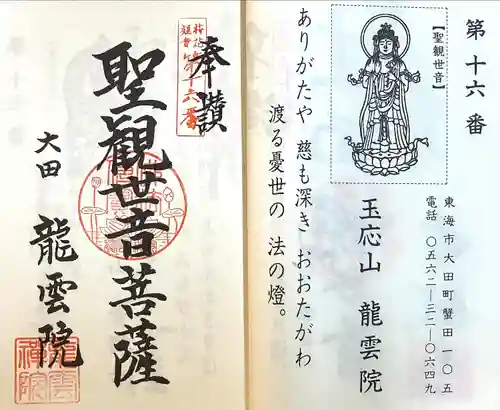 第十六番
【聖観世音】
東海市大田町蟹田一〇五
電話 〇五六二―三二―〇六四九
玉応山 龍雲院
ありがたや 慈も深き おおたがわ
渡る憂世の 法の燈。
奉讃
第十六番
聖觀世音菩薩
大田 龍雲院
龍雲
禅院